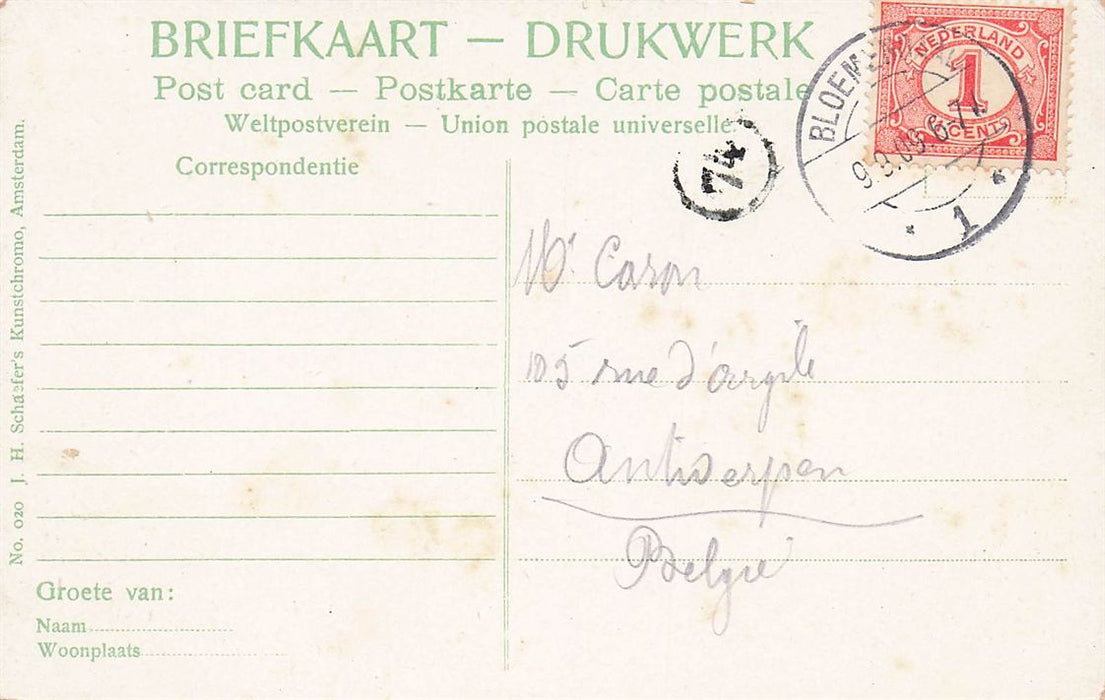 BRIEFKAART — DRUKWERK
Post card — Postkarte — Carte postale
Weltpostverein — Union postale universelle.
Correspondentie
NEDERLAND
1
CENT
BLOEMEN
9.9.09.6-7
1
74
Mr. Caron
105 rue d'argile
Antwerpen
België
Groete van:
Naam
Woonplaats
No. 020 J. H. Schaefer's Kunstchromo, Amsterdam.